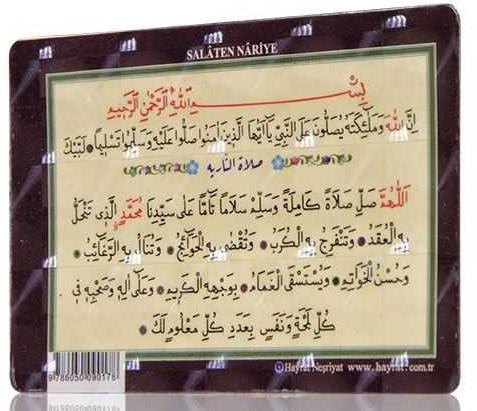 SALÂTEN NÂRİYE
بِسْمِ اللهِ الرَّحْمٰنِ الرَّحِيمِ
اِنَّ اللهَ وَمَلٰٓئِكَتَهُ يُصَلُّونَ عَلَى النَّبِيِّ يَٓا اَيُّهَا الَّذِينَ اٰمَنُوا صَلُّوا عَلَيْهِ وَسَلِّمُوا تَسْلِيمًا لَبَّيْكَ
صلاة النارية
اَللّٰهُمَّ صَلِّ صَلَاةً كَامِلَةً وَسَلِّمْ سَلَامًا تَامًّا عَلٰى سَيِّدِنَا مُحَمَّدٍ الَّذِي تَنْحَلُّ
بِهِ الْعُقَدُ وَتَنْفَرِجُ بِهِ الْكُرَبُ وَتُقْضٰى بِهِ الْحَوَٓائِجُ وَتُنَالُ بِهِ الرَّغَٓائِبُ
وَحُسْنُ الْخَوَاتِمِ وَيُسْتَسْقَى الْغَمَامُ بِوَجْهِهِ الْكَرِيمِ وَعَلٰٓى اٰلِهِ وَصَحْبِهِ فِي
كُلِّ لَمْحَةٍ وَنَفَسٍ بِعَدَدِ كُلِّ مَعْلُومٍ لَكَ
9 786050 090178
Hayrat Neşriyat www.hayrat.com.tr